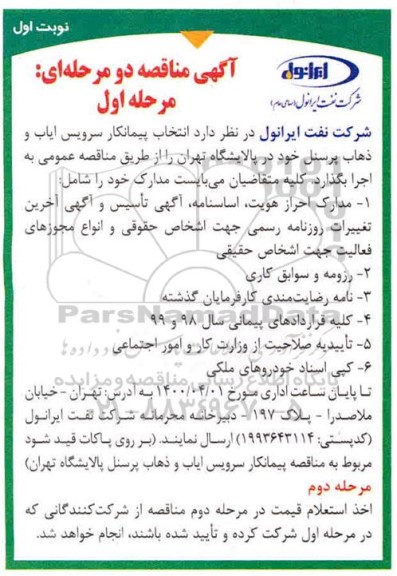 نوبت اول
ایرانول
شرکت نفت ایرانول (سهامی عام)
آگهی مناقصه دو مرحله‌ای:
مرحله اول
شرکت نفت ایرانول در نظر دارد انتخاب پیمانکار سرویس ایاب و
ذهاب پرسنل خود در پالایشگاه تهران را از طریق مناقصه عمومی به
اجرا بگذارد. کلیه متقاضیان می‌بایست مدارک خود را شامل:
۱- مدارک احراز هویت، اساسنامه، آگهی تأسیس و آگهی آخرین
تغییرات روزنامه رسمی جهت اشخاص حقوقی و انواع مجوزهای
فعالیت جهت اشخاص حقیقی
۲- رزومه و سوابق کاری
۳- نامه رضایت‌مندی کارفرمایان گذشته
ParsNamadData
۴- کلیه قراردادهای پیمانی سال ۹۸ و ۹۹
۵- تأییدیه صلاحیت از وزارت کار و امور اجتماعی
۶- کپی اسناد خودروهای ملکی
پایگاه اطلاع رسانی مناقصه و مزایده
تا پایان ساعت اداری مورخ ۱۴۰۰/۰۴/۰۱ به آدرس: تهران - خیابان
ملاصدرا - پلاک ۱۹۷- دبیرخانه محرمانه شرکت نفت ایرانول
۰۲۱-۸۸۳۴۹۶۷۰-۵
(کدپستی: ۱۹۹۳۶۴۳۱۱۴) ارسال نمایند. (بر روی پاکات قید شود
مربوط به مناقصه پیمانکار سرویس ایاب و ذهاب پرسنل پالایشگاه تهران)
مرحله دوم
اخذ استعلام قیمت در مرحله دوم مناقصه از شرکت‌کنندگانی که
در مرحله اول شرکت کرده و تأیید شده باشند، انجام خواهد شد.